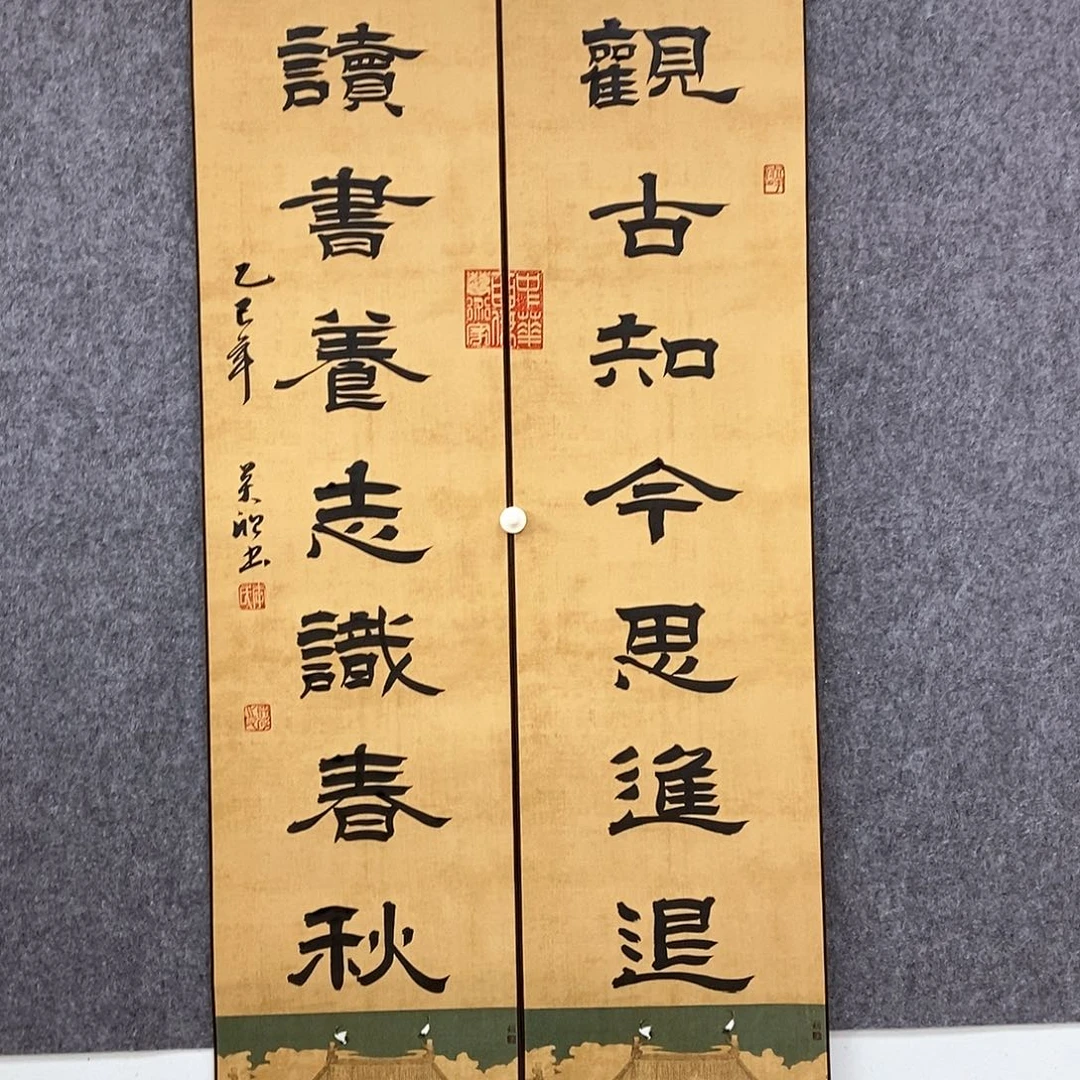 觀古知今思進退
讀書養志識春秋
乙巳年